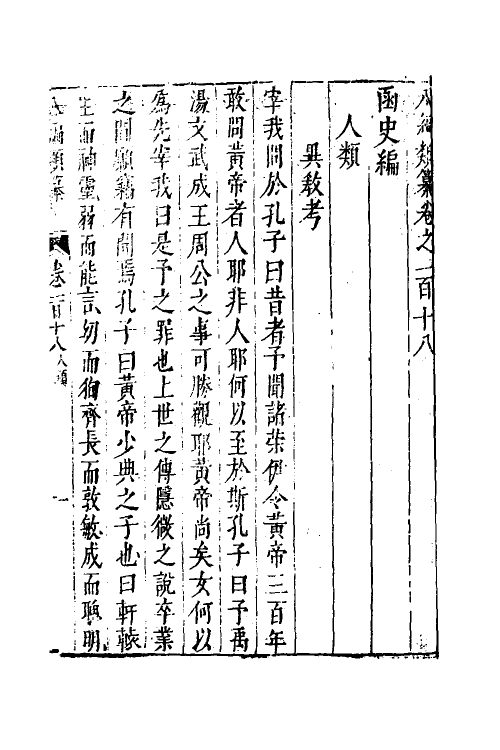 八編類纂卷之一百十八
函史編
人類
異教考
宰我問於孔子曰昔者予聞諸榮伊令黃帝三百年
敢問黃帝者人耶非人耶何以至於斯孔子曰予禹
湯文武成王周公之事可勝觀耶黃帝尚矣女何以
爲先宰我曰是予之罪也上世之傳隱微之說卒業
之聞顓藹有間焉孔子曰黃帝少典之子也曰軒轅
生而神靈弱而能言幼而徇齊長而敦敏成而聰明
八編類纂 卷一百十八人類 一